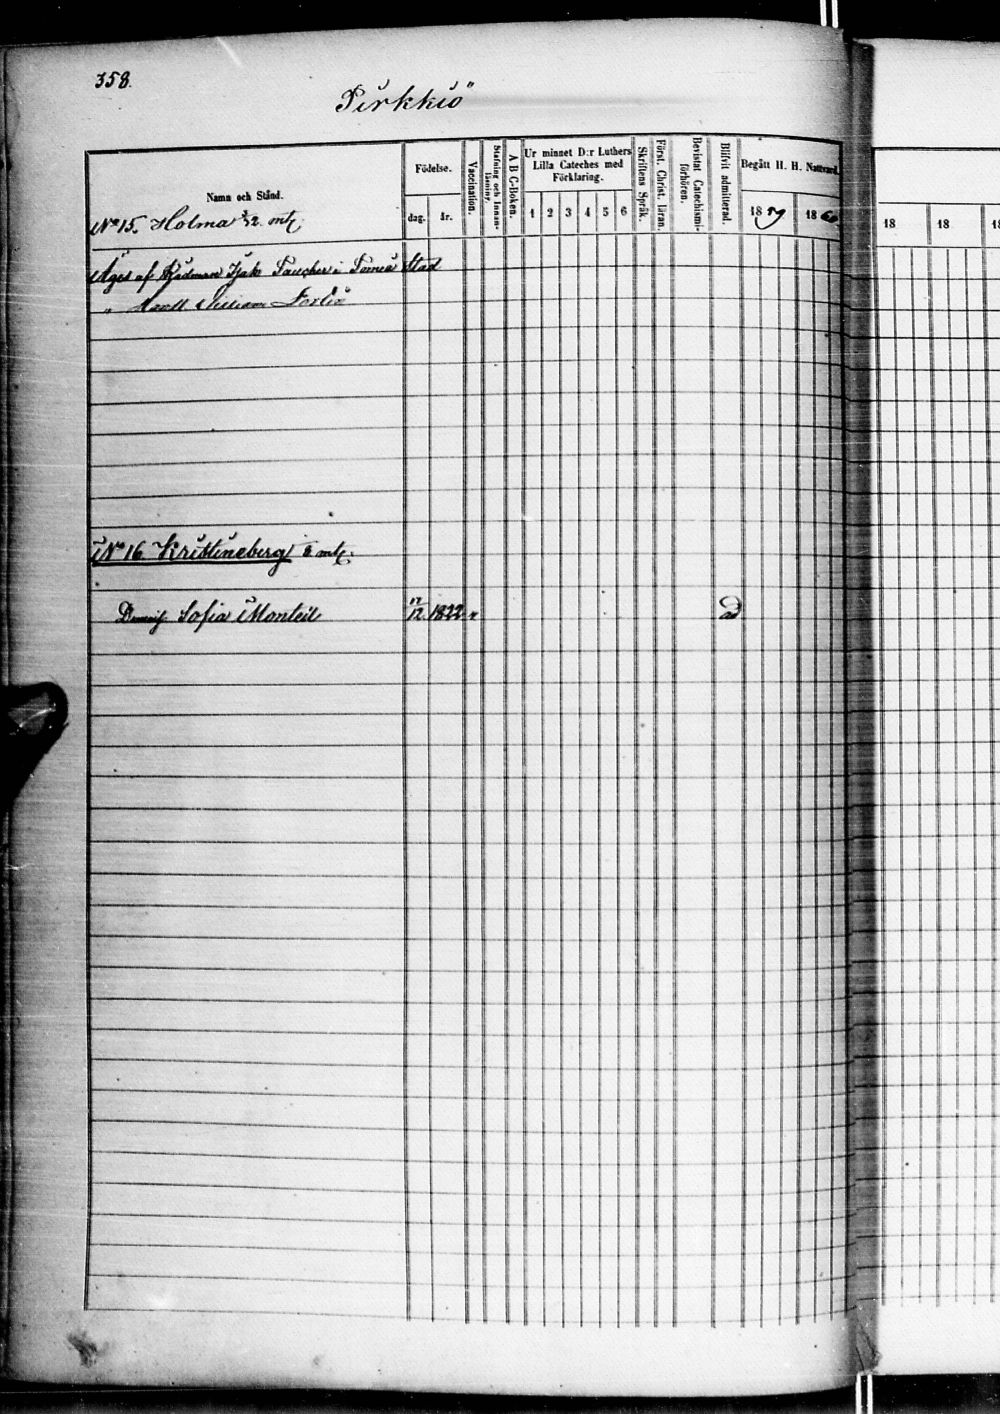 358.
Pirkkiö
Namn och Stånd.
Födelse.
dag. år.
Vaccination.
Stafning och Innanläsning.
A B C-Boken.
Ur minnet D:r Luthers
Lilla Cateches med
Förklaring.
1 2 3 4 5 6
Skriftens Språk.
Först. Christ. läran.
Bevistat Catechismi-
förhören.
Blifvit admitterad.
Begått H. H. Nattvard.
1859 1860
18 18 18
No 15. Holma mtl.
Äges af Rådman Isak i Torneå Stad
" 
No 16. Kristineberg mtl.
Sofia Montell 12/12. 1822. v ad